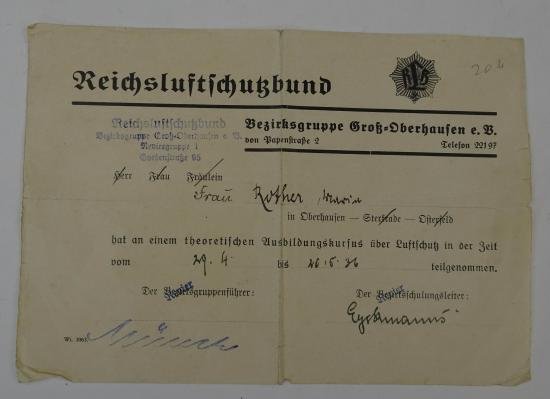 20.-
RLB
Reichsluftschutzbund
Reichsluftschutzbund
Bezirksgruppe Groß-Oberhausen e. V.
Reviergruppe 1
Goebenstraße 95
Bezirksgruppe Groß-Oberhausen e. V.
von Papenstraße 2 Telefon 22197
Herr Frau Fräulein
Frau Rother, Maria
in Oberhausen — Sterkrade — Osterfeld
hat an einem theoretischen Ausbildungskursus über Luftschutz in der Zeit
vom 29. 4. bis 26. 5. 36 teilgenommen.
Der Bezirksgruppenführer: Der Bezirksschulungsleiter:
Revier Revier